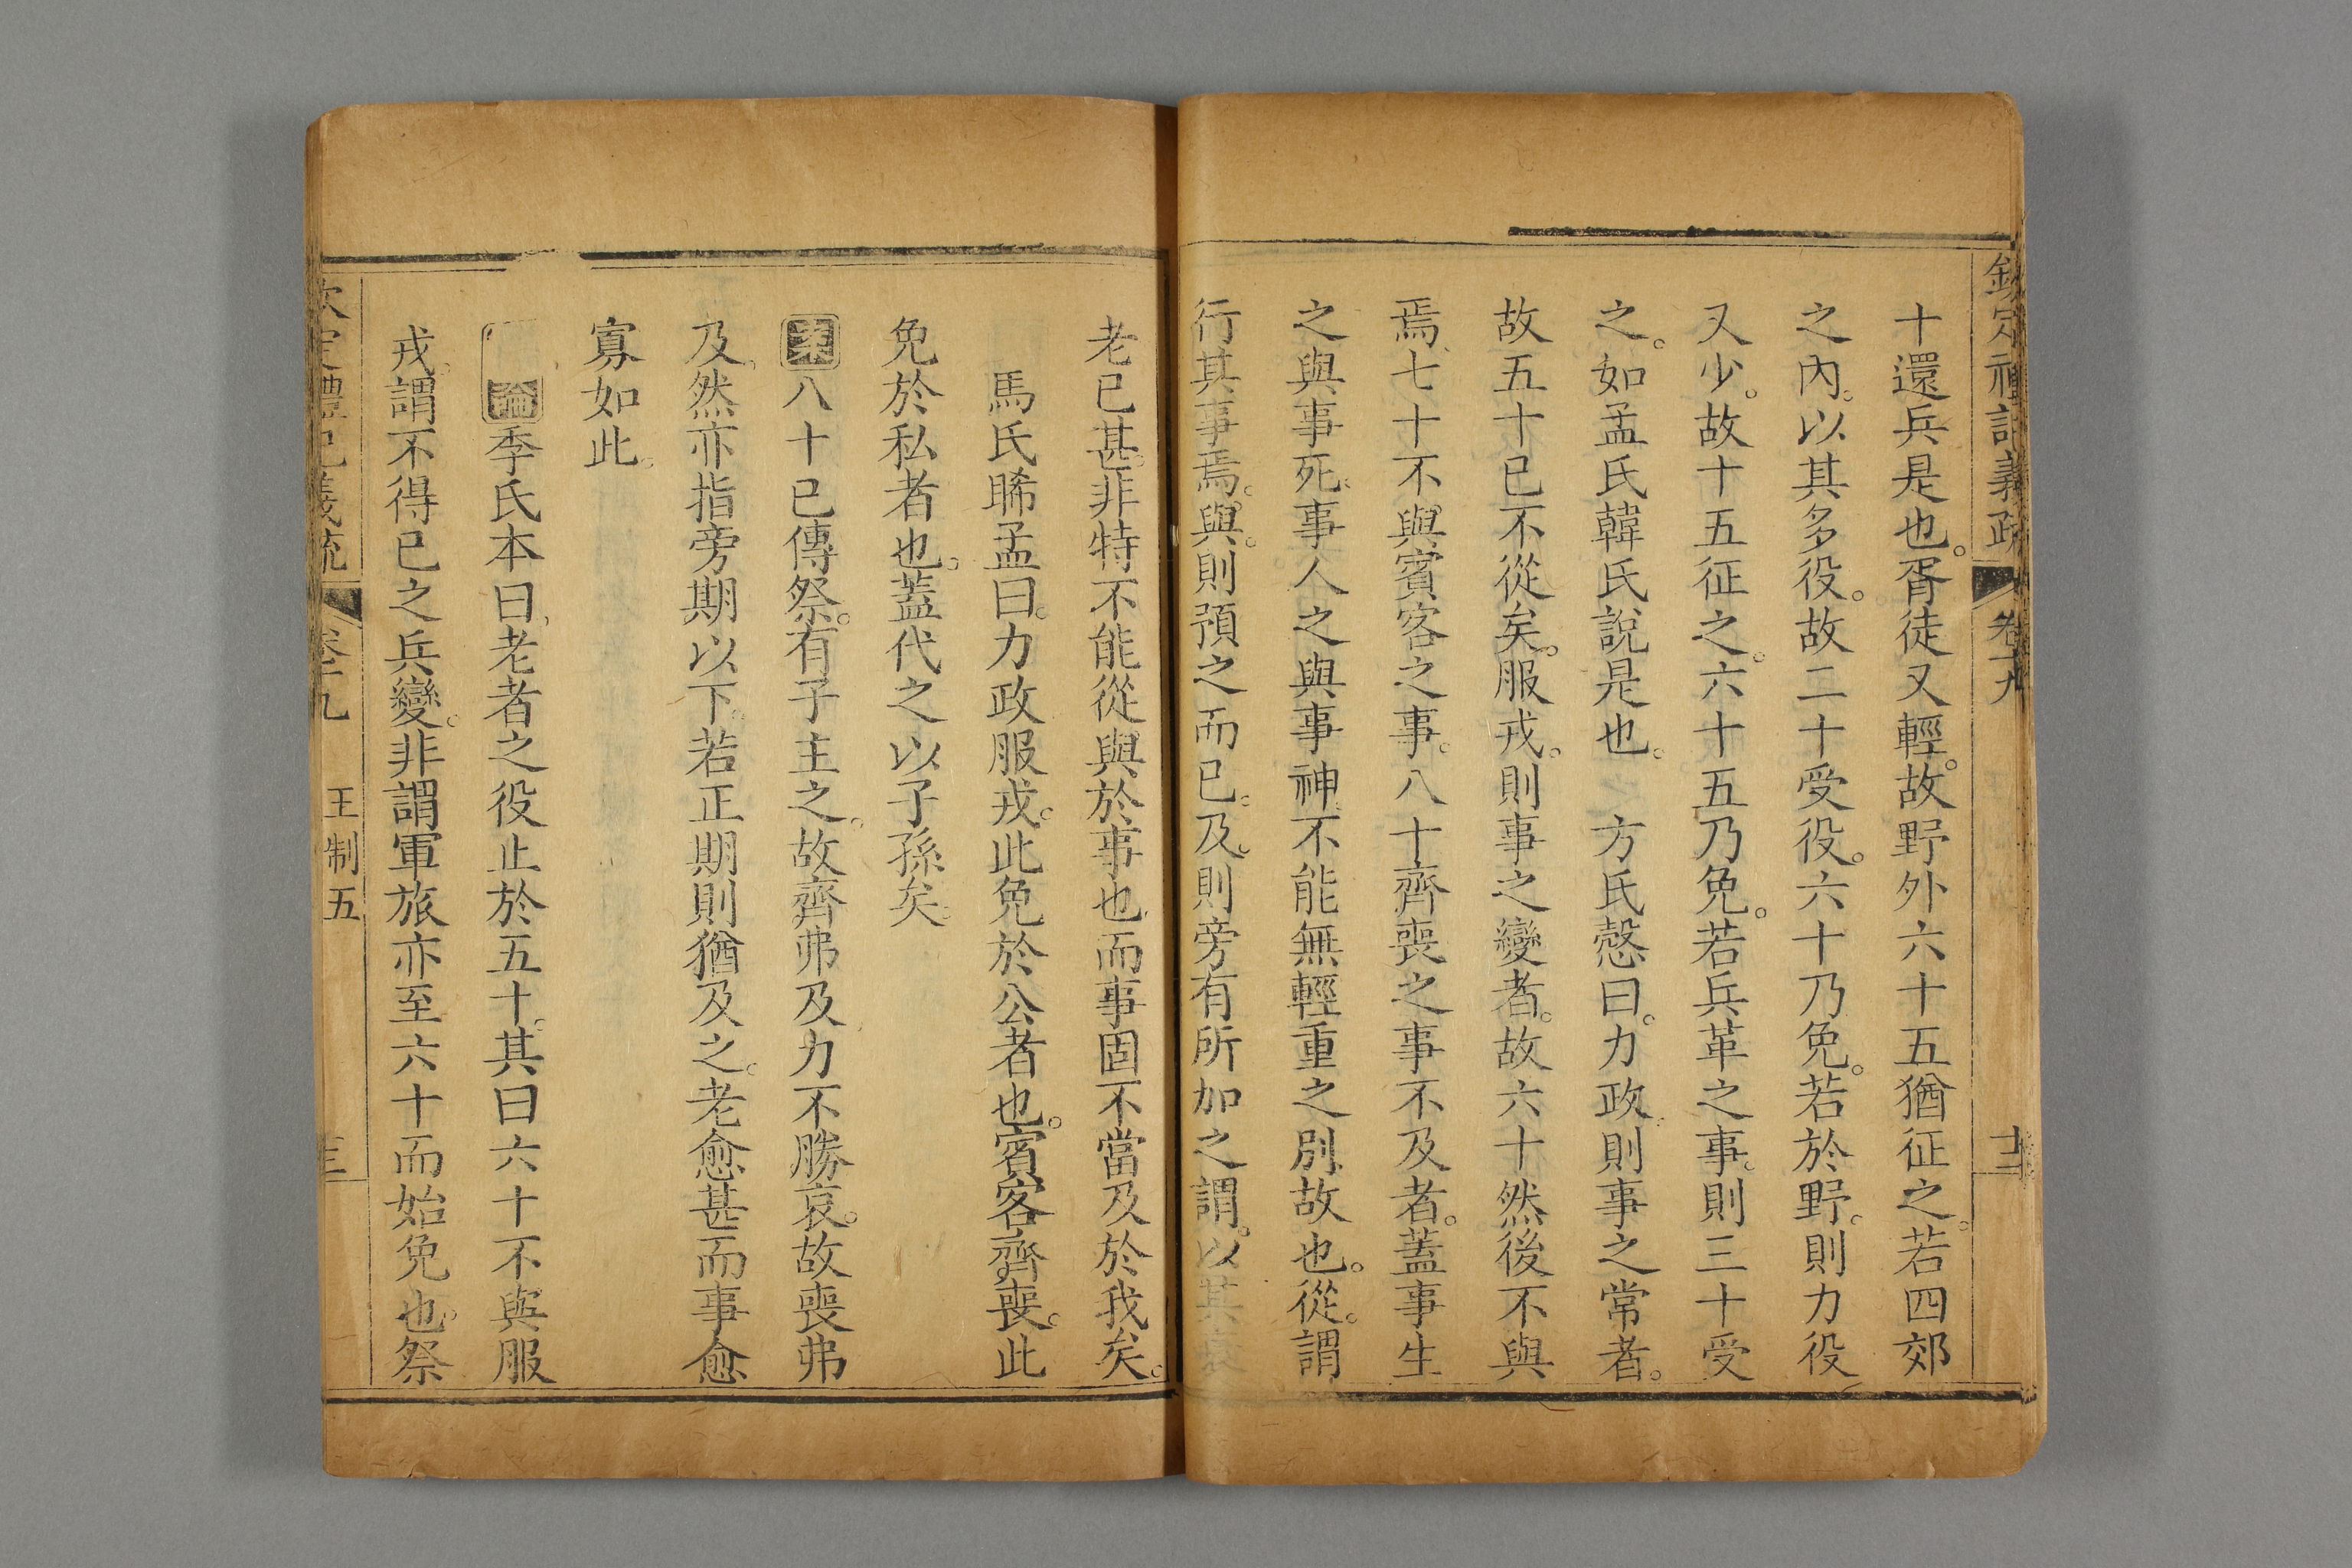 欽定禮記義疏 卷十九 十三
十還兵是也。胥徒又輕。故野外六十五猶征之。若四郊
之內。以其多役。故二十受役。六十乃免。若於野。則力役
又少。故十五征之。六十五乃免。若兵革之事。則三十受
之。如孟氏韓氏說是也。 方氏慤曰。力政。則事之常者。
故五十已不從矣。服戎。則事之變者。故六十然後不與
焉。七十不與賓客之事。八十齊喪之事不及者。蓋事生
之與事死。事人之與事神。不能無輕重之別故也。從。謂
行其事焉。與。則預之而已。及。則旁有所加之謂。以其衰
老已甚。非特不能從與於事也。而事固不當及於我矣。
馬氏睎孟曰。力政服戎。此免於公者也。賓客齊喪。此
免於私者也。蓋代之以子孫矣。
案八十已傳祭。有子主之。故齊弗及。力不勝哀。故喪弗
及。然亦指旁期以下。若正期則猶及之。老愈甚而事愈
寡如此。
論季氏本曰。老者之役止於五十。其曰六十不與服
戎。謂不得已之兵變。非謂軍旅亦至六十而始免也。祭
欽定禮記義疏 卷十九 王制五